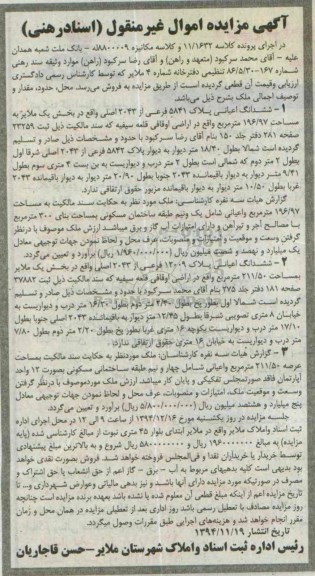 آگهی مزایده اموال غیر منقول (اسناد رهنی)
در اجرای پرونده کلاسه ۱۱/۱۶۳۲ و کلاسه مکانیزه ۸۸۰۰۰۰۹ له – بانک ملت شعبه همدان
علیه – آقای محمد سرکبود (متعهد و راهن) و آقای رضا سرکبود (راهن) موارد وثیقه سند رهنی
شماره ۱۶۷-۸۶/۵/۳۰ تنظیمی دفترخانه شماره ۴ ملایر که توسط کارشناس رسمی دادگستری
ارزیابی وقیمت آن قطعی گردیده است از طریق مزایده به فروش می‌رسد. محل، حدود، مقدار و
توصیف اجمالی ملک بشرح ذیل می‌باشد.
۱ – ششدانگ اعیانی پلاک ۵۸۴۱ فرعی از ۲۰۴۳ اصلی واقع در بخش یک ملایر به
مساحت ۱۹۶/۹۷ مترمربع واقع در اراضی اوقافی قلعه سیفیه که سند مالکیت ذیل ثبت ۲۳۲۵۹
صفحه ۲۸۱ دفتر جلد ۱۵۰ بنام آقای رضا سرکبود با حدود و مشخصات ذیل صادر و تسلیم
گردیده است شمالا بطول ۱۸/۴۰ متر دیوار به دیوار پلاک ۵۸۴۲ فرعی از ۲۰۴۳ اصلی شرقا اول
بطول ۲ متر دوم که شمالی است بطول ۲ متر درب و دیواریست به بن بست ۴ متری سوم بطول
۹/۴۱ متر دیوار به دیوار باقیمانده ۲۰۴۳ جنوبا بطول ۲۰/۹۰ متر دیوار به دیوار باقیمانده ۲۰۴۳
غربا بطول ۱۰/۵۰ متر دیوار به دیوار باقیمانده مزبور حقوق ارتفاقی ندارد.
گزارش هیات سه نفره کارشناسی: ملک مورد نظر به حکایت سند مالکیت به مساحت
۱۹۶/۹۷ مترمربع واعیانی شامل یک ونیم طبقه ساختمان مسکونی بمساحت بنای ۳۰۰ مترمربع
با مصالح آجر و تیرآهن و دارای امتیازات آب گاز و برق میباشد ارزش ملک موصوف با درنظر
گرفتن وسعت و موقعیت و امتیازات و منصوبات، عرف محل و لحاظ نمودن جهات توجیهی معادل
یک میلیارد و نهصد و شصت میلیون ریال (۱/۹۶۰/۰۰۰/۰۰۰ ریال) برآورد و تعیین می‌گردد.
۲ – ششدانگ اعیانی پلاک ۱۲۰۰۹ فرعی از ۲۰۴۳ اصلی واقع در بخش یک ملایر
بمساحت ۲۱۱/۵۰ مترمربع واقع در اراضی اوقافی قلعه سیفیه که سند مالکیت ذیل ثبت ۳۷۸۸۲
صفحه ۱۸۱ دفتر جلد ۲۷۵ بنام آقای محمد سرکبود با حدود و مشخصات ذیل صادر و تسلیم
گردیده است شمالا اول بطور پخ بطول ۲/۴۰ متر دوم بطول ۱۶/۲۰ متر درب و دیواریست به
خیابان ۸ متری تصویبی شرقا بطول ۱۲/۴۵ متر دیوار به باقیمانده ۲۰۴۳ اصلی جنوبا بطول
۱۷/۱۰ متر درب و دیواریست بکوچه ۱۶ متری غربا بطور پخ بطول ۲/۲۰ متر دوم بطول ۷/۸۰
متر درب و دیواریست به خیابان ۱۶ متری حقوق ارتفاقی ندارد.
۳ – گزارش هیات سه نفره کارشناسان: ملک موردنظر به حکایت سند مالکیت بمساحت
عرصه ۲۱۱/۵۰ مترمربع واعیانی شامل چهار و نیم طبقه ساختمانی مسکونی بصورت ۱۲ واحد
آپارتمان فاقد صورتمجلس تفکیکی و پایان کار میباشد. ارزش ملک موردموصوف با درنظر گرفتن
وسعت و موقعیت ملک، امتیازات و منصوبات، عرف محل و لحاظ نمودن جهات توجیهی معادل
پنج میلیارد و هشتصد میلیون ریال (۵/۸۰۰/۰۰۰/۰۰۰ ریال) برآورد و تعیین می‌گردد.
جلسه مزایده در روز یکشنبه مورخ ۱۳۹۴/۱۲/۱۶ از ساعت ۹ الی ۱۲ در محل اجرای اداره
ثبت اسناد واملاک ملایر واقع در ملایر ابتدای بلوار ۴۵ متری نبوت از مبالغ کارشناسی شده (پایه
مزایده) به مبالغ ۱۹۶۰۰۰۰۰۰۰ ریال و ۵۸۰۰۰۰۰۰۰۰ ریال شروع و به بالاترین مبلغ پیشنهادی
توسط خریدار یا خریداران نقدا و فی‌المجلس فروخته خواهد شد. فروش بصورت نقدی خواهد
بود بدیهی است کلیه بدهیهای مربوط به آب – برق – گاز اعم از حق انشعاب یا حق اشتراک و
مصرف در صورتیکه مورد مزایده دارای آنها باشد و نیز بدهی مالیاتی وعوارض شهرداری و... تا
تاریخ مزایده اعم از اینکه مبلغ قطعی آن معلوم شده یا نشده باشد بعهده برنده مزایده است چنانچه
روز مزایده مصادف با تعطیل رسمی باشد روز اداری بعد از تعطیلی مزایده در همان محل و زمان
مقرر انجام خواهد شد و هزینه‌های اجرایی طبق مقررات وصول میگردد.
تاریخ انتشار ۱۳۹۴/۱۱/۱۹
رئیس اداره ثبت اسناد واملاک شهرستان ملایر–حسن قاجاریان